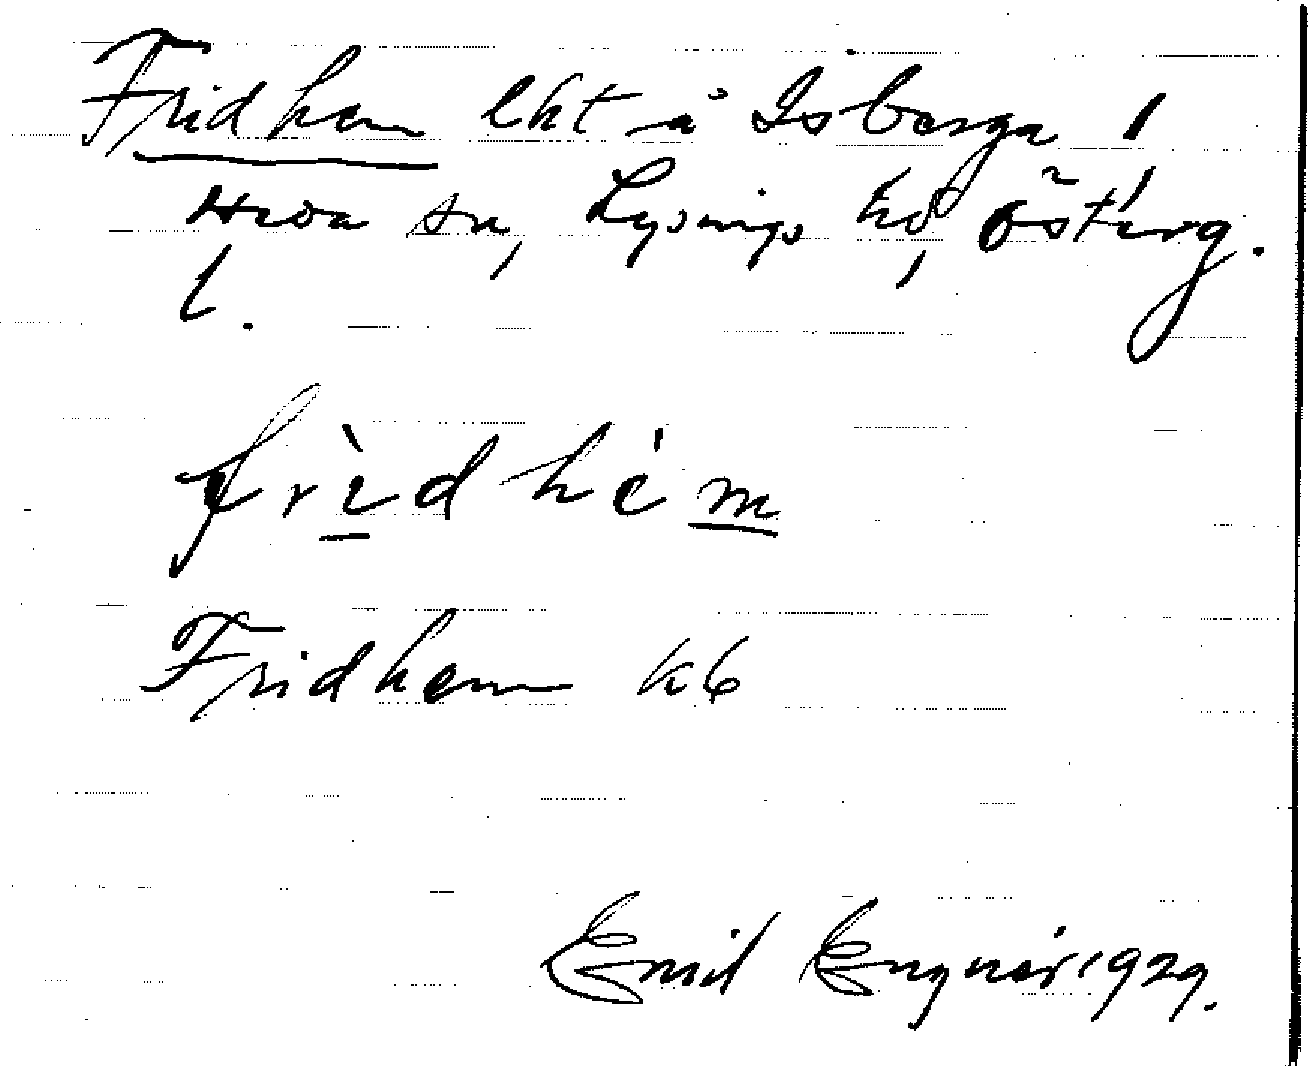 Fridhem lht å Isberga 1
Heda sn, Lysings hd, Österg.
l.
frìdhém
Fridhem k6
Emil Engnér 1929.